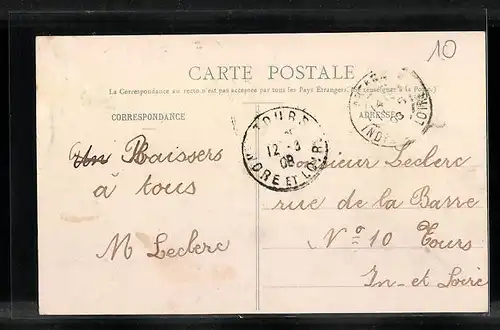 10
CARTE POSTALE
La Correspondance au recto n'est pas acceptée par tous les Pays Étrangers. (Se renseigner à la Poste)
CORRESPONDANCE
ADRESSE
TOURS
12 - 3
08
INDRE ET LOIRE
Un Baisers
à tous
M Leclerc
Monsieur Leclerc
rue de la Barre
Nº 10 Tours
In-et Loire